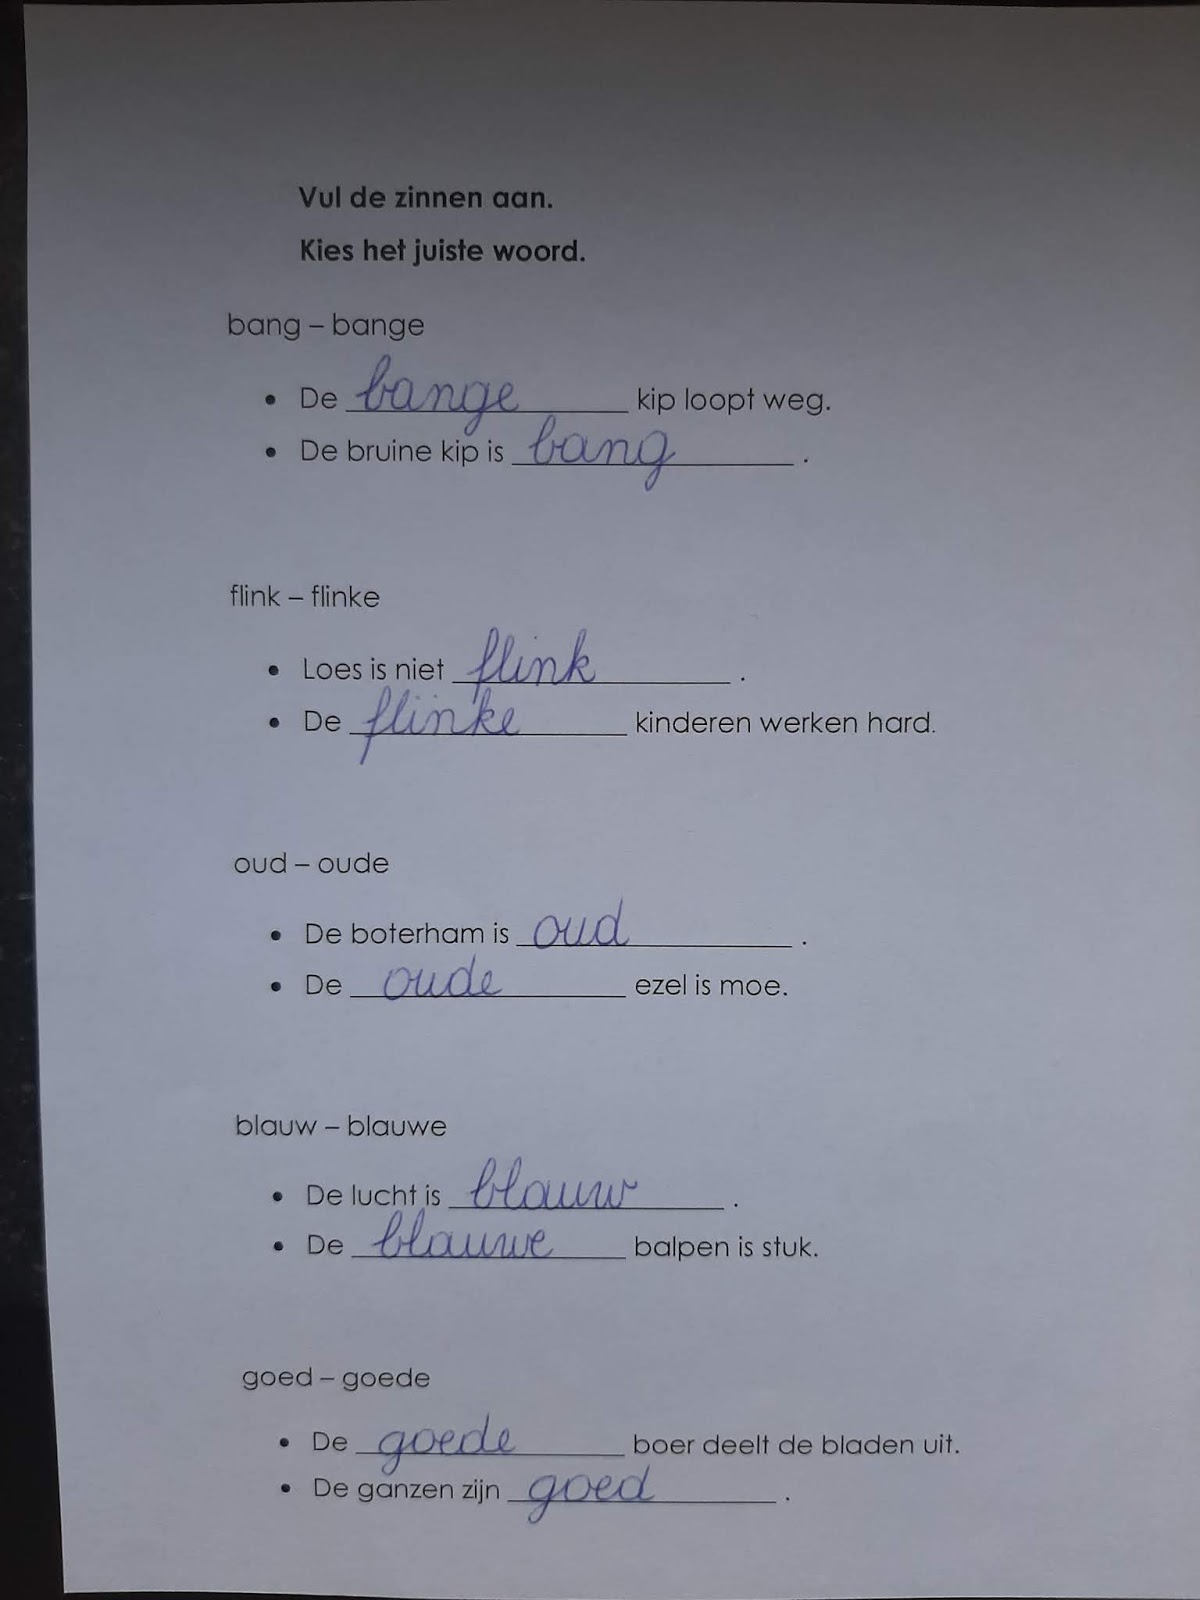 Vul de zinnen aan.
Kies het juiste woord.
bang – bange
• De bange kip loopt weg.
• De bruine kip is bang.
flink – flinke
• Loes is niet flink.
• De flinke kinderen werken hard.
oud – oude
• De boterham is oud.
• De oude ezel is moe.
blauw – blauwe
• De lucht is blauw.
• De blauwe balpen is stuk.
goed – goede
• De goede boer deelt de bladen uit.
• De ganzen zijn goed.